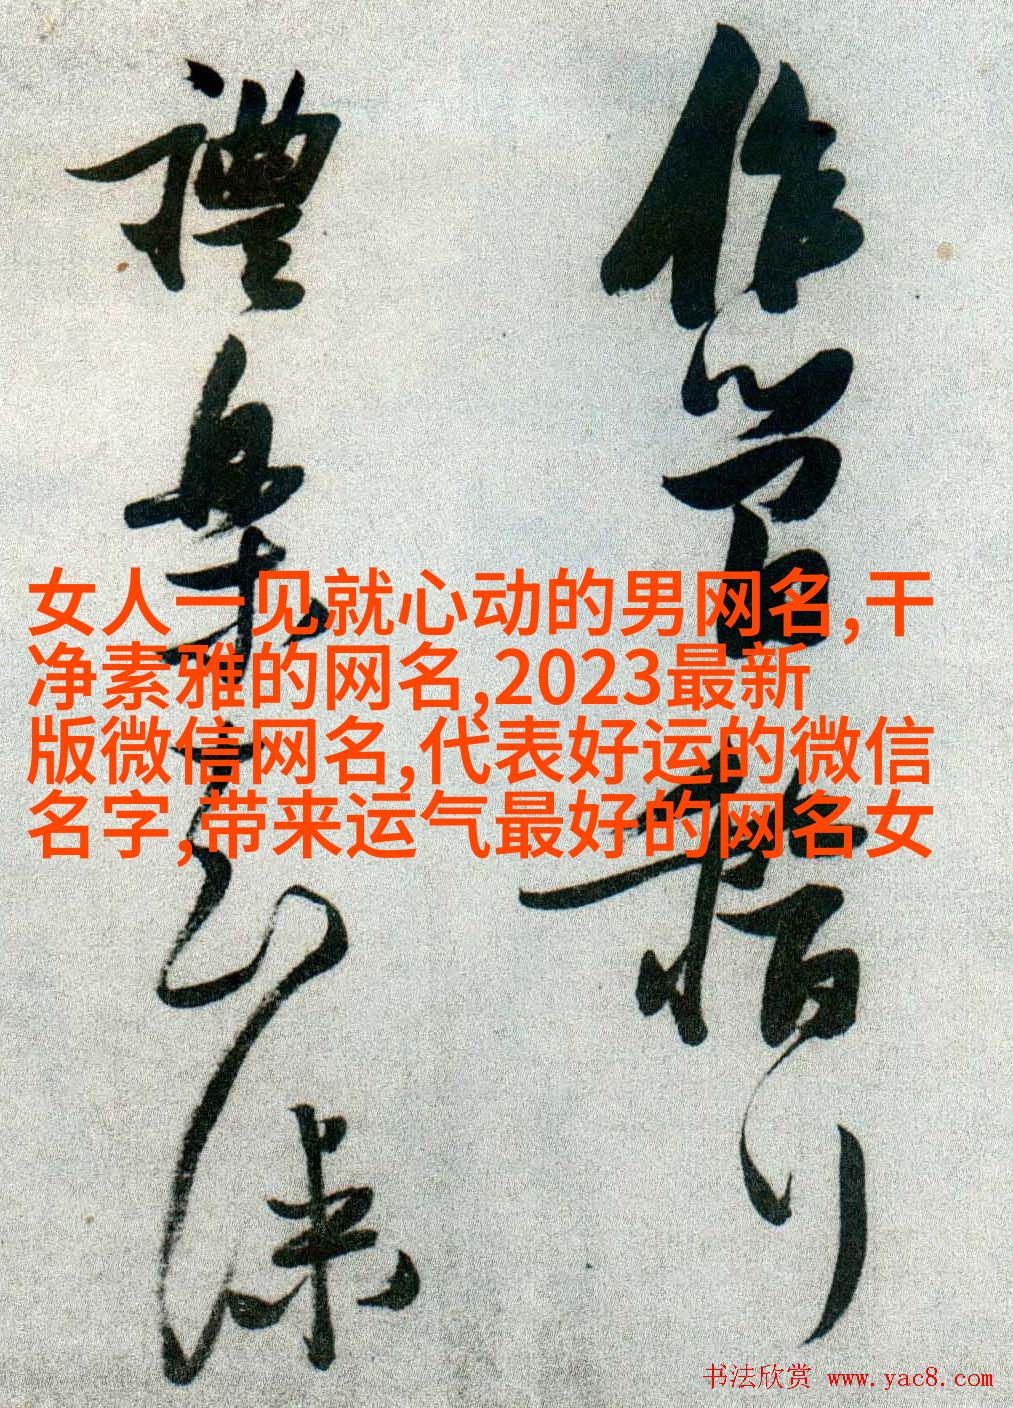 作 指
禮樂
女人一见就心动的男网名,干
净素雅的网名,2023最新
版微信网名,代表好运的微信
名字,带来运气最好的网名女
书法欣赏 www.yac8.com